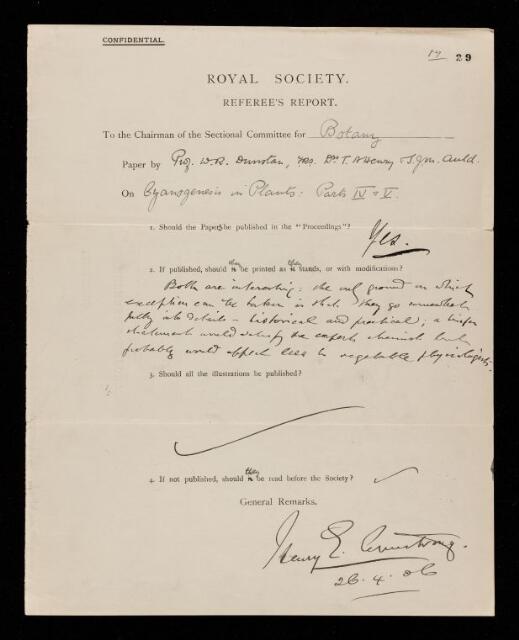 CONFIDENTIAL.
17 29
ROYAL SOCIETY.
REFEREE'S REPORT.
To the Chairman of the Sectional Committee for Botany
Paper by Prof. W. R. Dunstan, FRS. Dr. T. A Henry & S. J. M. Auld.
On Cyanogenesis in Plants: Parts IV & V.
1. Should the Papers be published in the "Proceedings"?
Yes.
2. If published, should they be printed as they stands, or with modifications?
Both are interesting: the only ground on which
exception can be taken is that they go somewhat
fully into details - historical and practical; a briefer
statement would satisfy the expert chemist but
probably would appeal less to vegetable physiologists.
3. Should all the illustrations be published?
4. If not published, should they be read before the Society?
General Remarks.
Henry E. Armstrong.
26. 4. 06